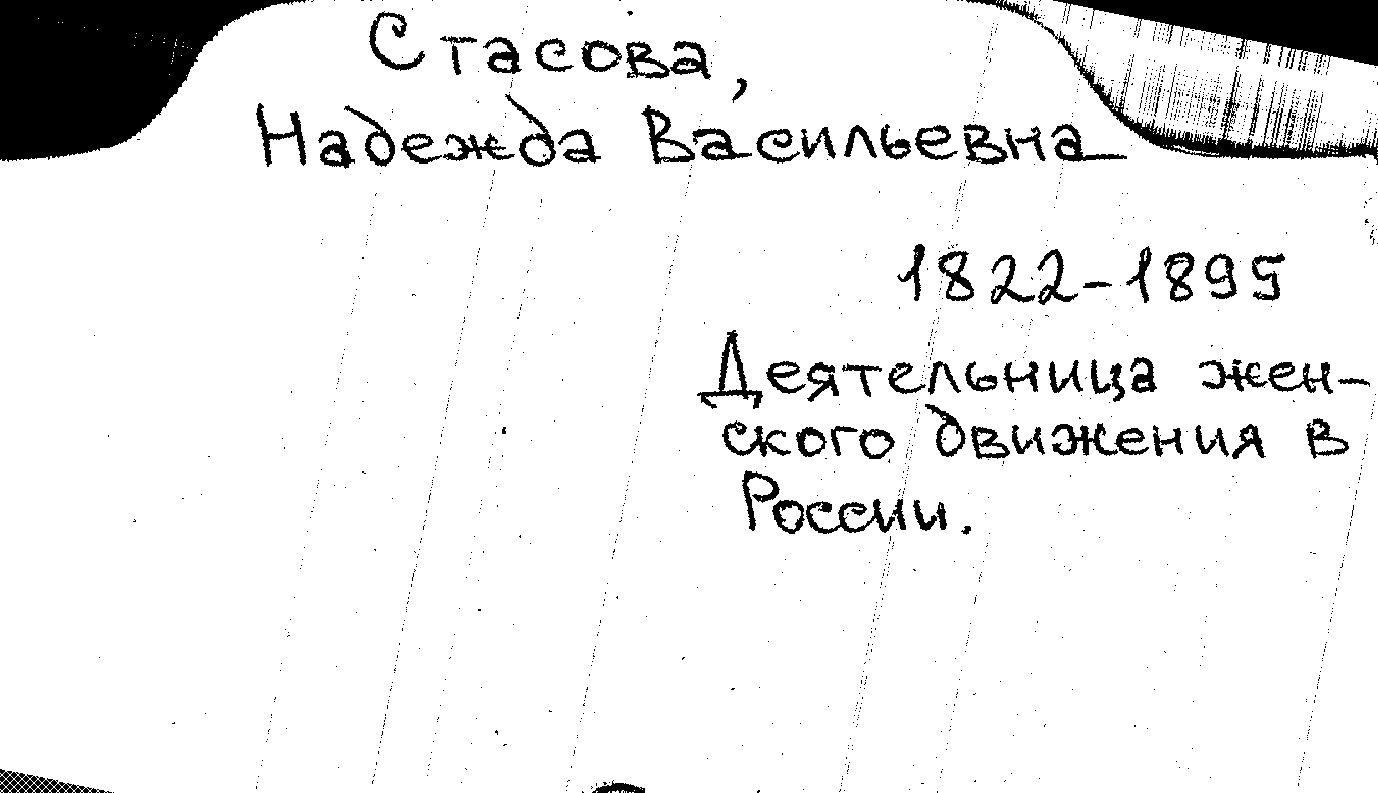 Стасова,
Надежда Васильевна
1822-1895
Деятельница жен-
ского движения в
России.